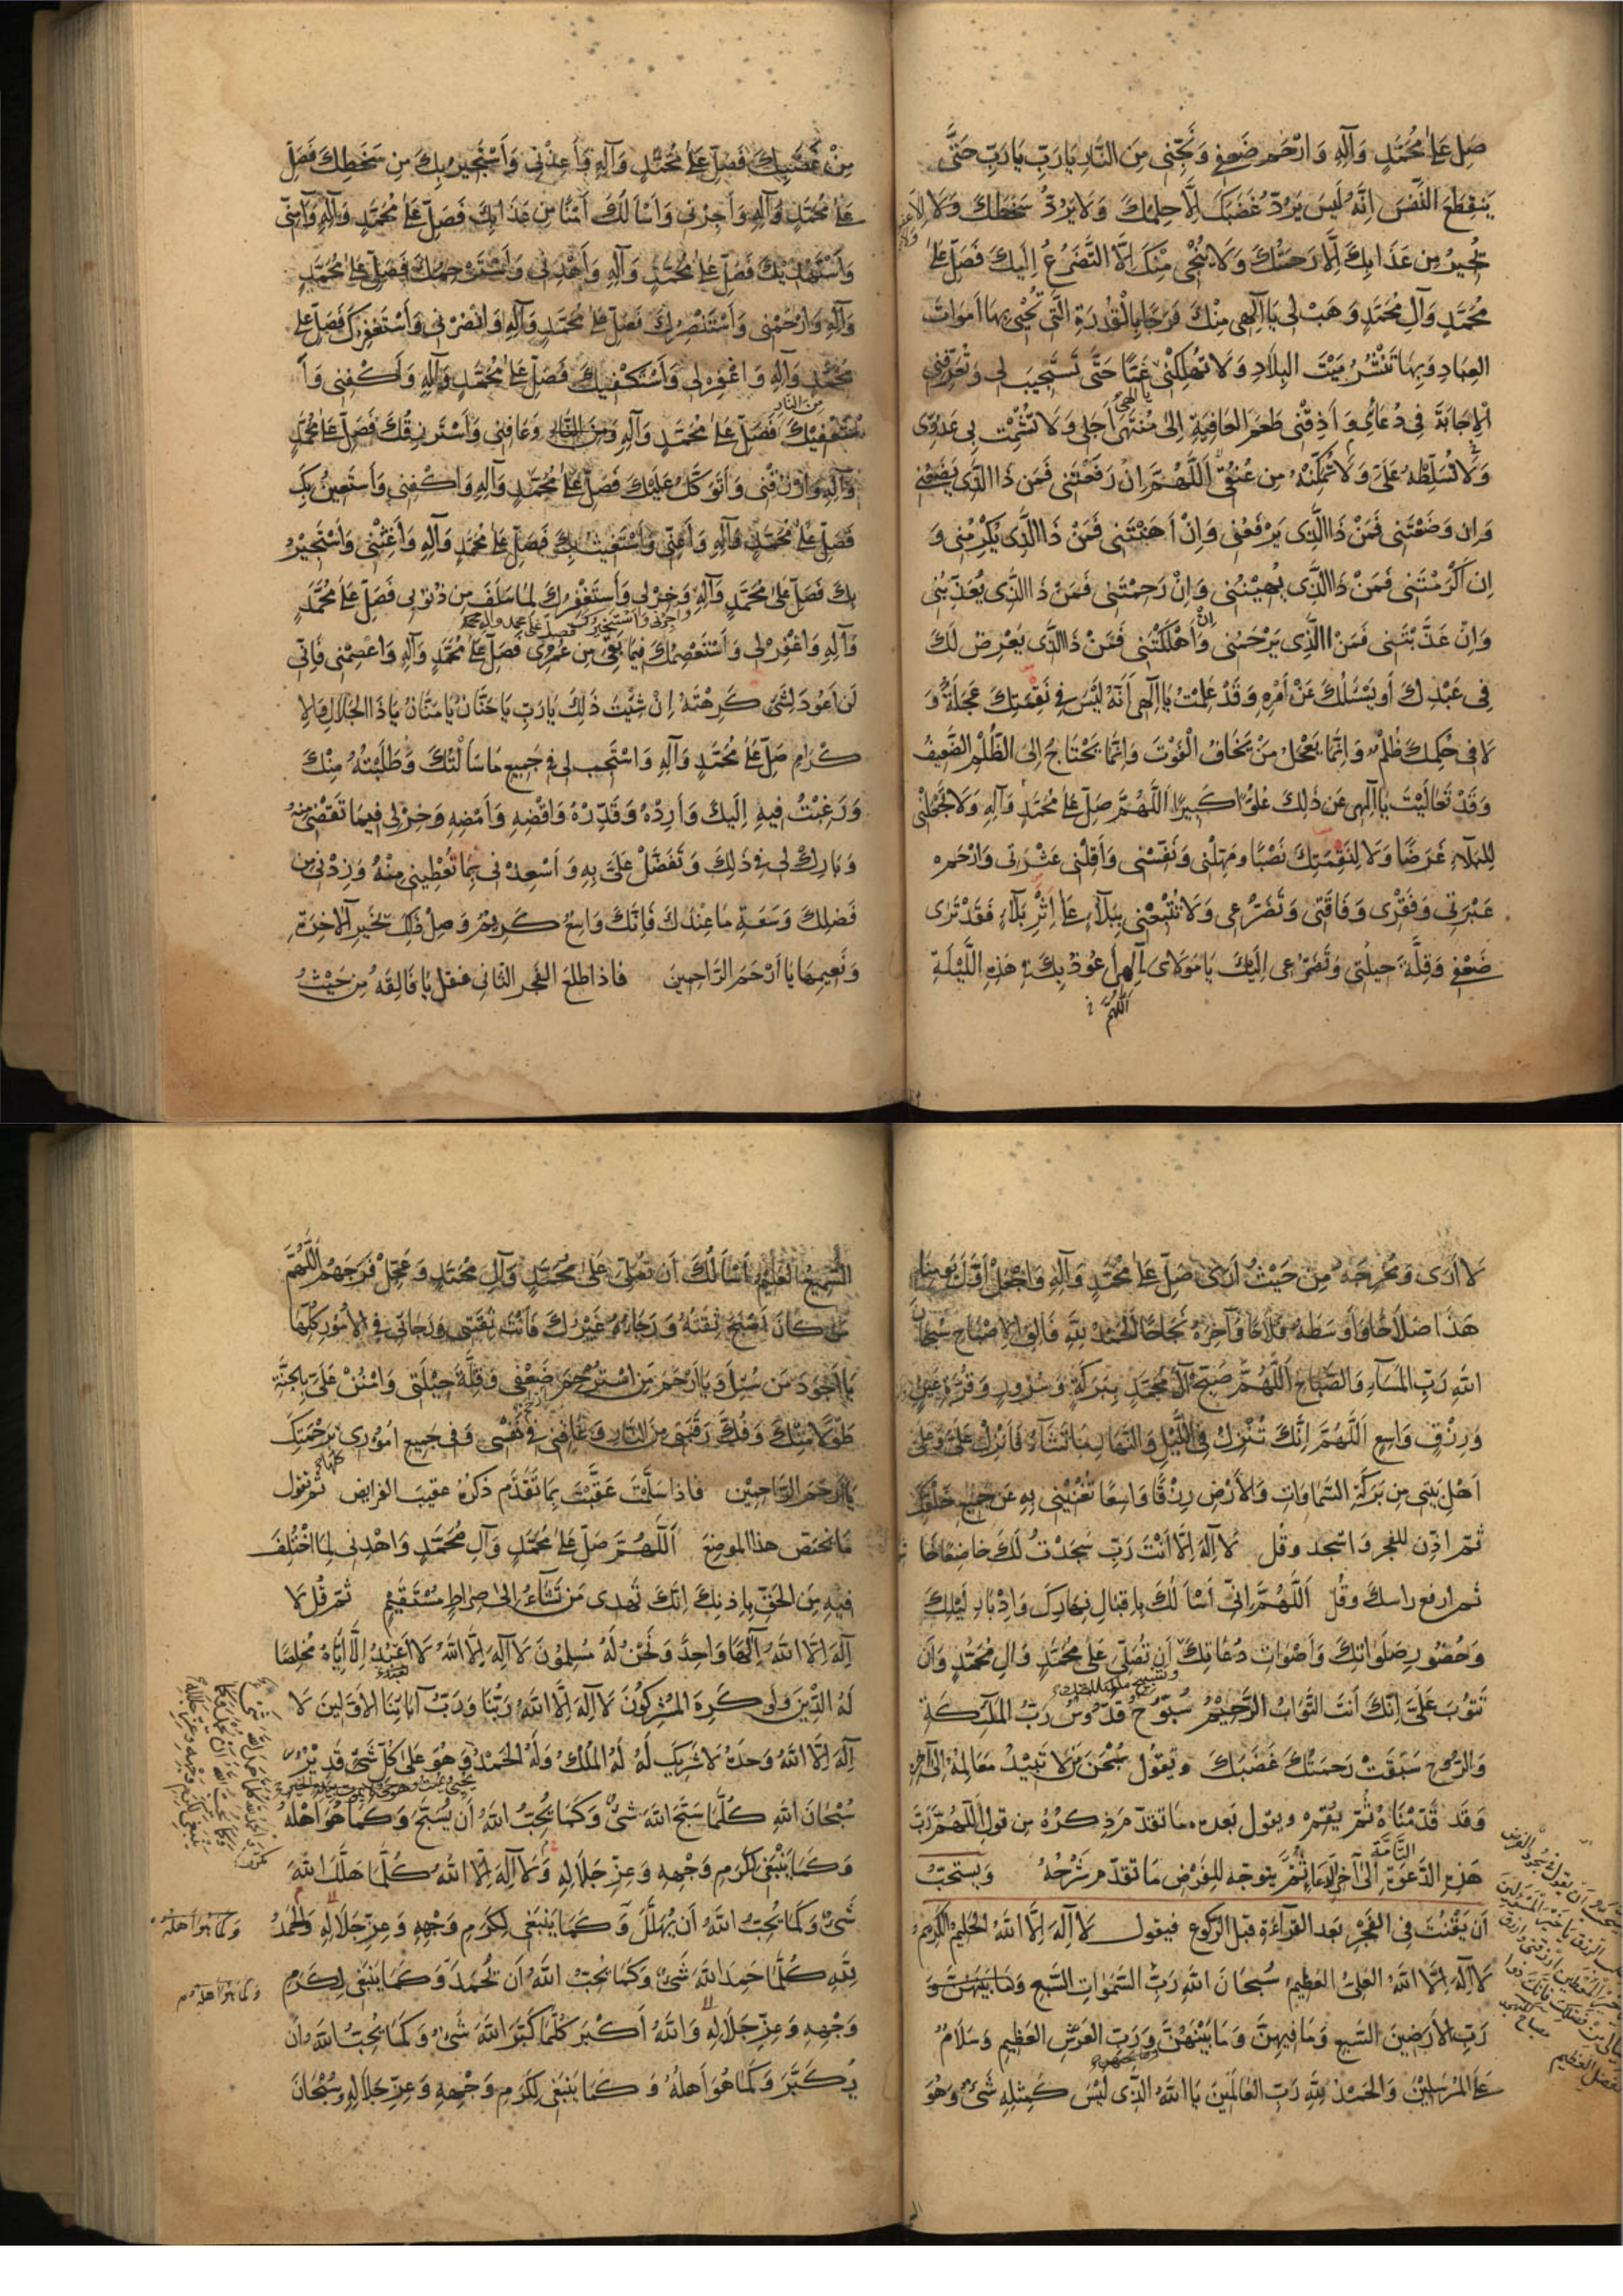 صَلِّ عَلىٰ مُحَمَّدٍ وَآلِهِ وَارْحَمْ ضَعْفِي وَنَجِّنِي مِنَ النَّارِ يَا رَبِّ يَا رَبِّ حَتَّى
يَنْقَطِعَ النَّفَسُ اِنَّهُ لَيْسَ يَرُدُّ غَضَبَكَ اِلَّا حِلْمُكَ وَلَا يَرُدُّ سَخَطَكَ وَلَا
تُجِيرُ مِن عَذَابِكَ اِلَّا رَحْمَتُكَ وَلَا يُنْجِي مِنْكَ اِلَّا التَّضَرُّعُ اِلَيْكَ فَصَلِّ عَلىٰ
مُحَمَّدٍ وَآلِ مُحَمَّدٍ وَهَبْ لِي يَا اِلٰهِي مِنْكَ فَرَجًا بِالْقُدْرَةِ الَّتِي تُحْيِي بِهَا اَمْوَاتَ
العِبَادِ وَبِهَا تَنْشُرُ مَيْتَ البِلَادِ وَلَا تُهْلِكْنِي غَمًّا حَتَّى تَسْتَجِيبَ لِي وَتُعَرِّفَنِي
يا الهي
الْاِجَابَةَ فِي دُعَائِي وَاَذِقْنِي طَعْمَ العَافِيَةِ اِلىٰ مُنْتَهَى اَجَلِي وَلَا تُشْمِتْ بِي عَدُوِّي
وَلَا تُسَلِّطْهُ عَلَيَّ وَلَا تُمَكِّنْهُ مِن عُنُقِي اَللّٰهُمَّ اِنْ رَفَعْتَنِي فَمَن ذَا الَّذِي يَضَعُنِي
وَاِن وَضَعْتَنِي فَمَنْ ذَا الَّذِي يَرْفَعُنِي وَاِنْ اَهَنْتَنِي فَمَنْ ذَا الَّذِي يُكْرِمُنِي وَ
اِن اَكْرَمْتَنِي فَمَنْ ذَا الَّذِي يُهِينُنِي وَاِنْ رَحِمْتَنِي فَمَنْ ذَا الَّذِي يُعَذِّبُنِي
وَاِنْ عَذَّبْتَنِي فَمَنْ ذَا الَّذِي يَرْحَمُنِي وَاِنْ اَهْلَكْتَنِي فَمَنْ ذَا الَّذِي يَعْرِضُ لَكَ
فِي عَبْدِكَ اَو يَسْئَلُكَ عَنْ اَمْرِهِ وَقَدْ عَلِمْتُ يَا اِلٰهِي اَنَّهُ لَيْسَ فِي نَقِمَتِكَ عَجَلَةٌ وَ
لَا فِي حُكْمِكَ ظُلْمٌ وَاِنَّمَا يَعْجَلُ مَنْ يَخَافُ الْفَوْتَ وَاِنَّمَا يَحْتَاجُ اِلَى الظُّلْمِ الضَّعِيفُ
وَقَدْ تَعَالَيْتَ يَا اِلٰهِي عَن ذٰلِكَ عُلُوًّا كَبِيرًا اَللّٰهُمَّ صَلِّ عَلىٰ مُحَمَّدٍ وَآلِهِ وَلَا تَجْعَلْنِي
لِلْبَلَاءِ غَرَضًا وَلَا لِنَقِمَتِكَ نَصْبًا وَمَهِّلْنِي وَنَفِّسْنِي وَاَقِلْنِي عَثْرَتِي وَارْحَمْ
عَبْرَتِي وَفَقْرِي وَفَاقَتِي وَتَضَرُّعِي وَلَا تُتْبِعْنِي بِبَلَاءٍ عَلىٰ اِثْرِ بَلَاءٍ فَقَدْ تَرٰى
ضَعْفِي وَقِلَّةَ حِيلَتِي وَتَضَرُّعِي اِلَيْكَ يَا مَوْلَايَ اِلٰهِي اَعُوذُ بِكَ فِي هٰذِهِ اللَّيْلَةِ
اللّٰهم
مِنْ غَضَبِكَ فَصَلِّ عَلىٰ مُحَمَّدٍ وَآلِهِ وَاَعِذْنِي وَاَسْتَجِيرُ بِكَ مِن سَخَطِكَ فَصَلِّ
عَلىٰ مُحَمَّدٍ وَآلِهِ وَاَجِرْنِي وَاَسْاَلُكَ اَمْنًا مِن عَذَابِكَ فَصَلِّ عَلىٰ مُحَمَّدٍ وَآلِهِ وَآمِنِّي
وَاَسْتَهْدِيكَ فَصَلِّ عَلىٰ مُحَمَّدٍ وَآلِهِ وَاهْدِنِي وَاَسْتَرْحِمُكَ فَصَلِّ عَلىٰ مُحَمَّدٍ
وَآلِهِ وَارْحَمْنِي وَاَسْتَنْصِرُكَ فَصَلِّ عَلىٰ مُحَمَّدٍ وَآلِهِ وَانْصُرْنِي وَاَسْتَغْفِرُكَ فَصَلِّ عَلىٰ
مُحَمَّدٍ وَآلِهِ وَاغْفِرْ لِي وَاَسْتَكْفِيكَ فَصَلِّ عَلىٰ مُحَمَّدٍ وَآلِهِ وَاكْفِنِي وَاَ
مِنَ النَّارِ
سْتَعْفِيكَ فَصَلِّ عَلىٰ مُحَمَّدٍ وَآلِهِ وَعَافِنِي وَاَسْتَرْزِقُكَ فَصَلِّ عَلىٰ مُحَمَّدٍ
وَآلِهِ وَارْزُقْنِي وَاَتَوَكَّلُ عَلَيْكَ فَصَلِّ عَلىٰ مُحَمَّدٍ وَآلِهِ وَاكْفِنِي وَاَسْتَعِينُ بِكَ
فَصَلِّ عَلىٰ مُحَمَّدٍ وَآلِهِ وَاَعِنِّي وَاَسْتَغِيثُ بِكَ فَصَلِّ عَلىٰ مُحَمَّدٍ وَآلِهِ وَاَغِثْنِي وَاَسْتَجِيرُ
بِكَ فَصَلِّ عَلىٰ مُحَمَّدٍ وَآلِهِ وَخِرْ لِي وَاَسْتَغْفِرُكَ لِمَا سَلَفَ مِن ذُنُوبِي فَصَلِّ عَلىٰ مُحَمَّدٍ
واجرني واستخيرك فصل على محمد وآل محمد
وَآلِهِ وَاغْفِرْ لِي وَاَسْتَعْصِمُكَ فِيمَا بَقِيَ مِن عُمْرِي فَصَلِّ عَلىٰ مُحَمَّدٍ وَآلِهِ وَاعْصِمْنِي فَاِنِّي
لَن اَعُودَ لِشَيْءٍ كَرِهْتَهُ اِنْ شِئْتَ ذٰلِكَ يَا رَبِّ يَا حَنَّانُ يَا مَنَّانُ يَا ذَا الجَلَالِ وَالاِ
كْرَامِ صَلِّ عَلىٰ مُحَمَّدٍ وَآلِهِ وَاسْتَجِبْ لِي فِي جَمِيعِ مَا سَاَلْتُكَ وَطَلَبْتُهُ مِنْكَ
وَرَغِبْتُ فِيهِ اِلَيْكَ وَاَرِدْهُ وَقَدِّرْهُ وَاقْضِهِ وَاَمْضِهِ وَخِرْ لِي فِيمَا تَقْضِي مِنْهُ
وَبَارِكْ لِي فِي ذٰلِكَ وَتَفَضَّلْ عَلَيَّ بِهِ وَاَسْعِدْنِي بِمَا تُعْطِينِي مِنْهُ وَزِدْنِي مِن
فَضْلِكَ وَسَعَةِ مَا عِنْدَكَ فَاِنَّكَ وَاسِعٌ كَرِيمٌ وَصِلْ ذٰلِكَ بِخَيْرِ الْآخِرَةِ
وَنَعِيمِهَا يَا اَرْحَمَ الرَّاحِمِينَ فاذا طلع الفجر الثاني فقل يَا فَالِقَهُ مِن حَيْثُ
لَا اَرٰى وَمُخْرِجَهُ مِن حَيْثُ اَرٰى صَلِّ عَلىٰ مُحَمَّدٍ وَآلِهِ وَاجْعَلْ اَوَّلَ يَوْمِنَا
هَذَا صَلَاحًا وَاَوْسَطَهُ فَلَاحًا وَآخِرَهُ نَجَاحًا الحَمْدُ لِلّٰهِ فَالِقِ الْاِصْبَاحِ سُبْحَانَ
اللهِ رَبِّ المَسَاءِ وَالصَّبَاحِ اَللّٰهُمَّ صَبِّحْ آلَ مُحَمَّدٍ بِبَرَكَةٍ وَسُرُورٍ وَقُرَّةِ عَيْنٍ
وَرِزْقٍ وَاسِعٍ اَللّٰهُمَّ اِنَّكَ تُنْزِلُ فِي اللَّيْلِ وَالنَّهَارِ مَا تَشَاءُ فَاَنْزِلْ عَلَيَّ وَعَلىٰ
اَهْلِ بَيْتِي مِن بَرَكَةِ السَّمَاوَاتِ وَالاَرْضِ رِزْقًا وَاسِعًا تُغْنِينِي بِهِ عَن جَمِيعِ خَلْقِكَ
ثم اذّن للفجر واسجد وقل لَا اِلٰهَ اِلَّا اَنْتَ رَبِّ سَجَدْتُ لَكَ خَاضِعًا خَاشِعًا
ثم ارفع راسك وقُل اَللّٰهُمَّ اِنِّي اَسْاَلُكَ بِاِقْبَالِ نَهَارِكَ وَاِدْبَارِ لَيْلِكَ
وَحُضُورِ صَلَوَاتِكَ وَاَصْوَاتِ دُعَاتِكَ اَن تُصَلِّيَ عَلىٰ مُحَمَّدٍ وَآلِ مُحَمَّدٍ وَاَن
وتسبيح ملائكتك
تَتُوبَ عَلَيَّ اِنَّكَ اَنتَ التَّوَّابُ الرَّحِيمُ سُبُّوحٌ قُدُّوسٌ رَبُّ المَلَائِكَةِ
وَالرُّوحِ سَبَقَتْ رَحْمَتُكَ غَضَبَكَ وتقول سُبْحٰنَ مَنْ لَا تَبِيدُ مَعَالِمُهُ اِلى آخِرِهِ
وَقَد قَدَّمْنَاهُ ثُمَّ يُقيم ويقول بعده ما تقدّم ذِكرُهُ من قول اَللّٰهُمَّ رَبَّ
التَّامَّةِ
هٰذِهِ الدَّعْوَةِ اِلَى آخر الدعاء ثُمَّ يتوجّه للفَرْضِ ما تقدّم شَرْحُهُ ويستحَبّ
أن يَقْنُتَ فِي الفَجْرِ بَعد القِرَاءَةِ قبل الرّكوع فيقول لَا اِلٰهَ اِلَّا اللهُ الحَلِيمُ الكَرِيمُ
لَا اِلٰهَ اِلَّا اللهُ العَلِيُّ العَظِيمُ سُبْحَانَ اللهِ رَبِّ السَّمٰوَاتِ السَّبْعِ وَمَا بَيْنَهُنَّ وَ
رَبِّ الاَرَضِينَ السَّبْعِ وَمَا فِيهِنَّ وَمَا بَيْنَهُنَّ وَرَبِّ العَرْشِ العَظِيمِ وَسَلَامٌ
وما تحتهن
عَلَى المُرْسَلِينَ وَالحَمْدُ لِلّٰهِ رَبِّ العَالَمِينَ يَا اَللهُ الَّذِي لَيْسَ كَمِثْلِهِ شَيْءٌ وَهُوَ
السَّمِيعُ العَلِيمُ اَسْاَلُكَ اَن تُصَلِّيَ عَلىٰ مُحَمَّدٍ وَآلِ مُحَمَّدٍ وَعَجِّلْ فَرَجَهُمْ اَللّٰهُمَّ
مَن كَانَ اَصْبَحَ ثِقَتُهُ وَرَجَاؤُهُ غَيْرَكَ فَاَنْتَ ثِقَتِي وَرَجَائِي فِي الاُمُورِ كُلِّهَا
يَا اَجْوَدَ مَن سُئِلَ وَيَا اَرْحَمَ مَنِ اسْتُرْحِمَ ارْحَمْ ضَعْفِي وَقِلَّةَ حِيلَتِي وَامْنُنْ عَلَيَّ بِالجَنَّةِ
طَوْلًا مِنْكَ وَفُكَّ رَقَبَتِي مِنَ النَّارِ وَعَافِنِي فِي نَفْسِي وَفِي جَمِيعِ اُمُورِي بِرَحْمَتِكَ
كلها
يَا اَرْحَمَ الرَّاحِمِين فاذا سَلَّمْتَ عَقَّبْتَ بِمَا تَقَدَّم ذكرُهُ عقيبَ الفرايض ثم تقول
مَا يختصّ هذا الموضِعَ اَللّٰهُمَّ صَلِّ عَلىٰ مُحَمَّدٍ وَآلِ مُحَمَّدٍ وَاهْدِنِي لِمَا اخْتُلِفَ
فِيهِ مِنَ الحَقِّ بِاِذْنِكَ اِنَّكَ تَهْدِي مَن تَشَاءُ اِلىٰ صِرَاطٍ مُسْتَقِيمٍ ثم قُل لَا
اِلٰهَ اِلَّا اللهُ اِلٰهًا وَاحِدًا وَنَحْنُ لَهُ مُسْلِمُونَ لَا اِلٰهَ اِلَّا اللهُ لَا اَعْبُدُ اِلَّا اِيَّاهُ مُخْلِصًا
نعبد
لَهُ الدِّينَ وَلَو كَرِهَ المُشْرِكُونَ لَا اِلٰهَ اِلَّا اللهُ رَبُّنَا وَرَبُّ آبَائِنَا الاَوَّلِينَ لَا
اِلٰهَ اِلَّا اللهُ وَحْدَهُ لَا شَرِيكَ لَهُ لَهُ المُلْكُ وَلَهُ الحَمْدُ وَهُوَ عَلىٰ كُلِّ شَيْءٍ قَدِيرٌ
سُبْحَانَ اللهِ كُلَّمَا سَبَّحَ اللهَ شَيْءٌ وَكَمَا يُحِبُّ اللهُ اَن يُسَبَّحَ وَكَمَا هُوَ اَهْلُهُ
وَكَمَا يَنْبَغِي لِكَرَمِ وَجْهِهِ وَعِزِّ جَلَالِهِ وَلَا اِلٰهَ اِلَّا اللهُ كُلَّمَا هَلَّلَ اللهَ
شَيْءٌ وَكَمَا يُحِبُّ اللهُ اَن يُهَلَّلَ وَكَمَا يَنْبَغِي لِكَرَمِ وَجْهِهِ وَعِزِّ جَلَالِهِ وَالحَمْدُ
وكما هو اهله
لِلّٰهِ كُلَّمَا حَمِدَ اللهَ شَيْءٌ وَكَمَا يُحِبُّ اللهُ اَن يُحْمَدَ وَكَمَا يَنْبَغِي لِكَرَمِ
وكما هو اهله
وَجْهِهِ وَعِزِّ جَلَالِهِ وَاللهُ اَكْبَرُ كُلَّمَا كَبَّرَ اللهَ شَيْءٌ وَكَمَا يُحِبُّ اللهُ اَن
يُكَبَّرَ وَكَمَا هُوَ اَهْلُهُ وَكَمَا يَنْبَغِي لِكَرَمِ وَجْهِهِ وَعِزِّ جَلَالِهِ وَسُبْحَانَ